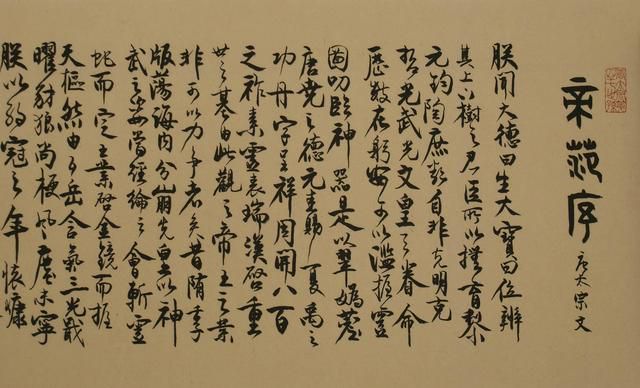 帝範序
唐太宗文
朕聞大德曰生大寶曰位辨
其上下樹之君臣所以撫育黎
元鈞陶庶類自非克明克
哲允武允文皇天眷命
歷数在躬安可以濫握靈
圖叨臨神器是以翠媯薦
唐堯之德元圭賜夏禹之
功丹字呈祥周開八百
之祚素靈表瑞漢啓重
世之基由此觀之帝王之業
非可以力爭者矣昔隋季
版蕩海内分崩先皇以神
武之姿當經綸之會斬靈
蛇而定王業啓金鏡而握
天樞然由五岳含氣三光戢
曜豺狼尚梗風塵未寧
朕以弱冠之年懷慷